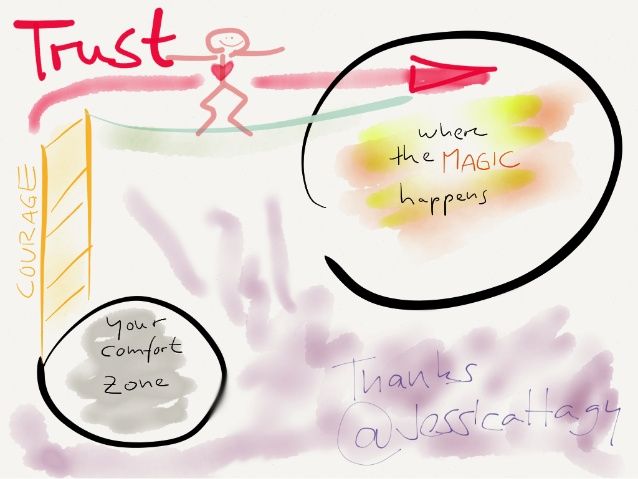 Trust
COURAGE
where
the MAGIC
happens
your
comfort
zone
Thanks
@Jessicattagy